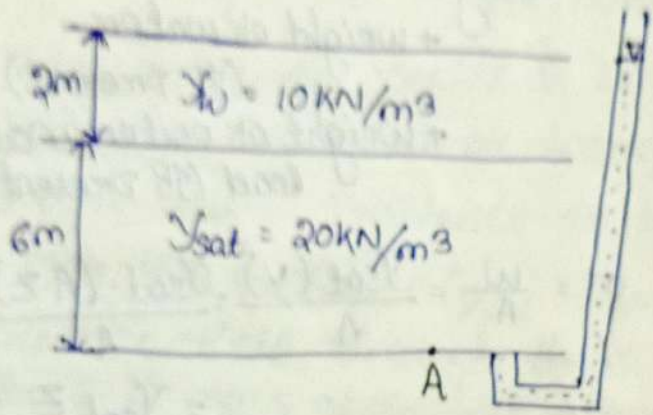 2m
γw = 10KN/m3
6m
γsat = 20KN/m3
A